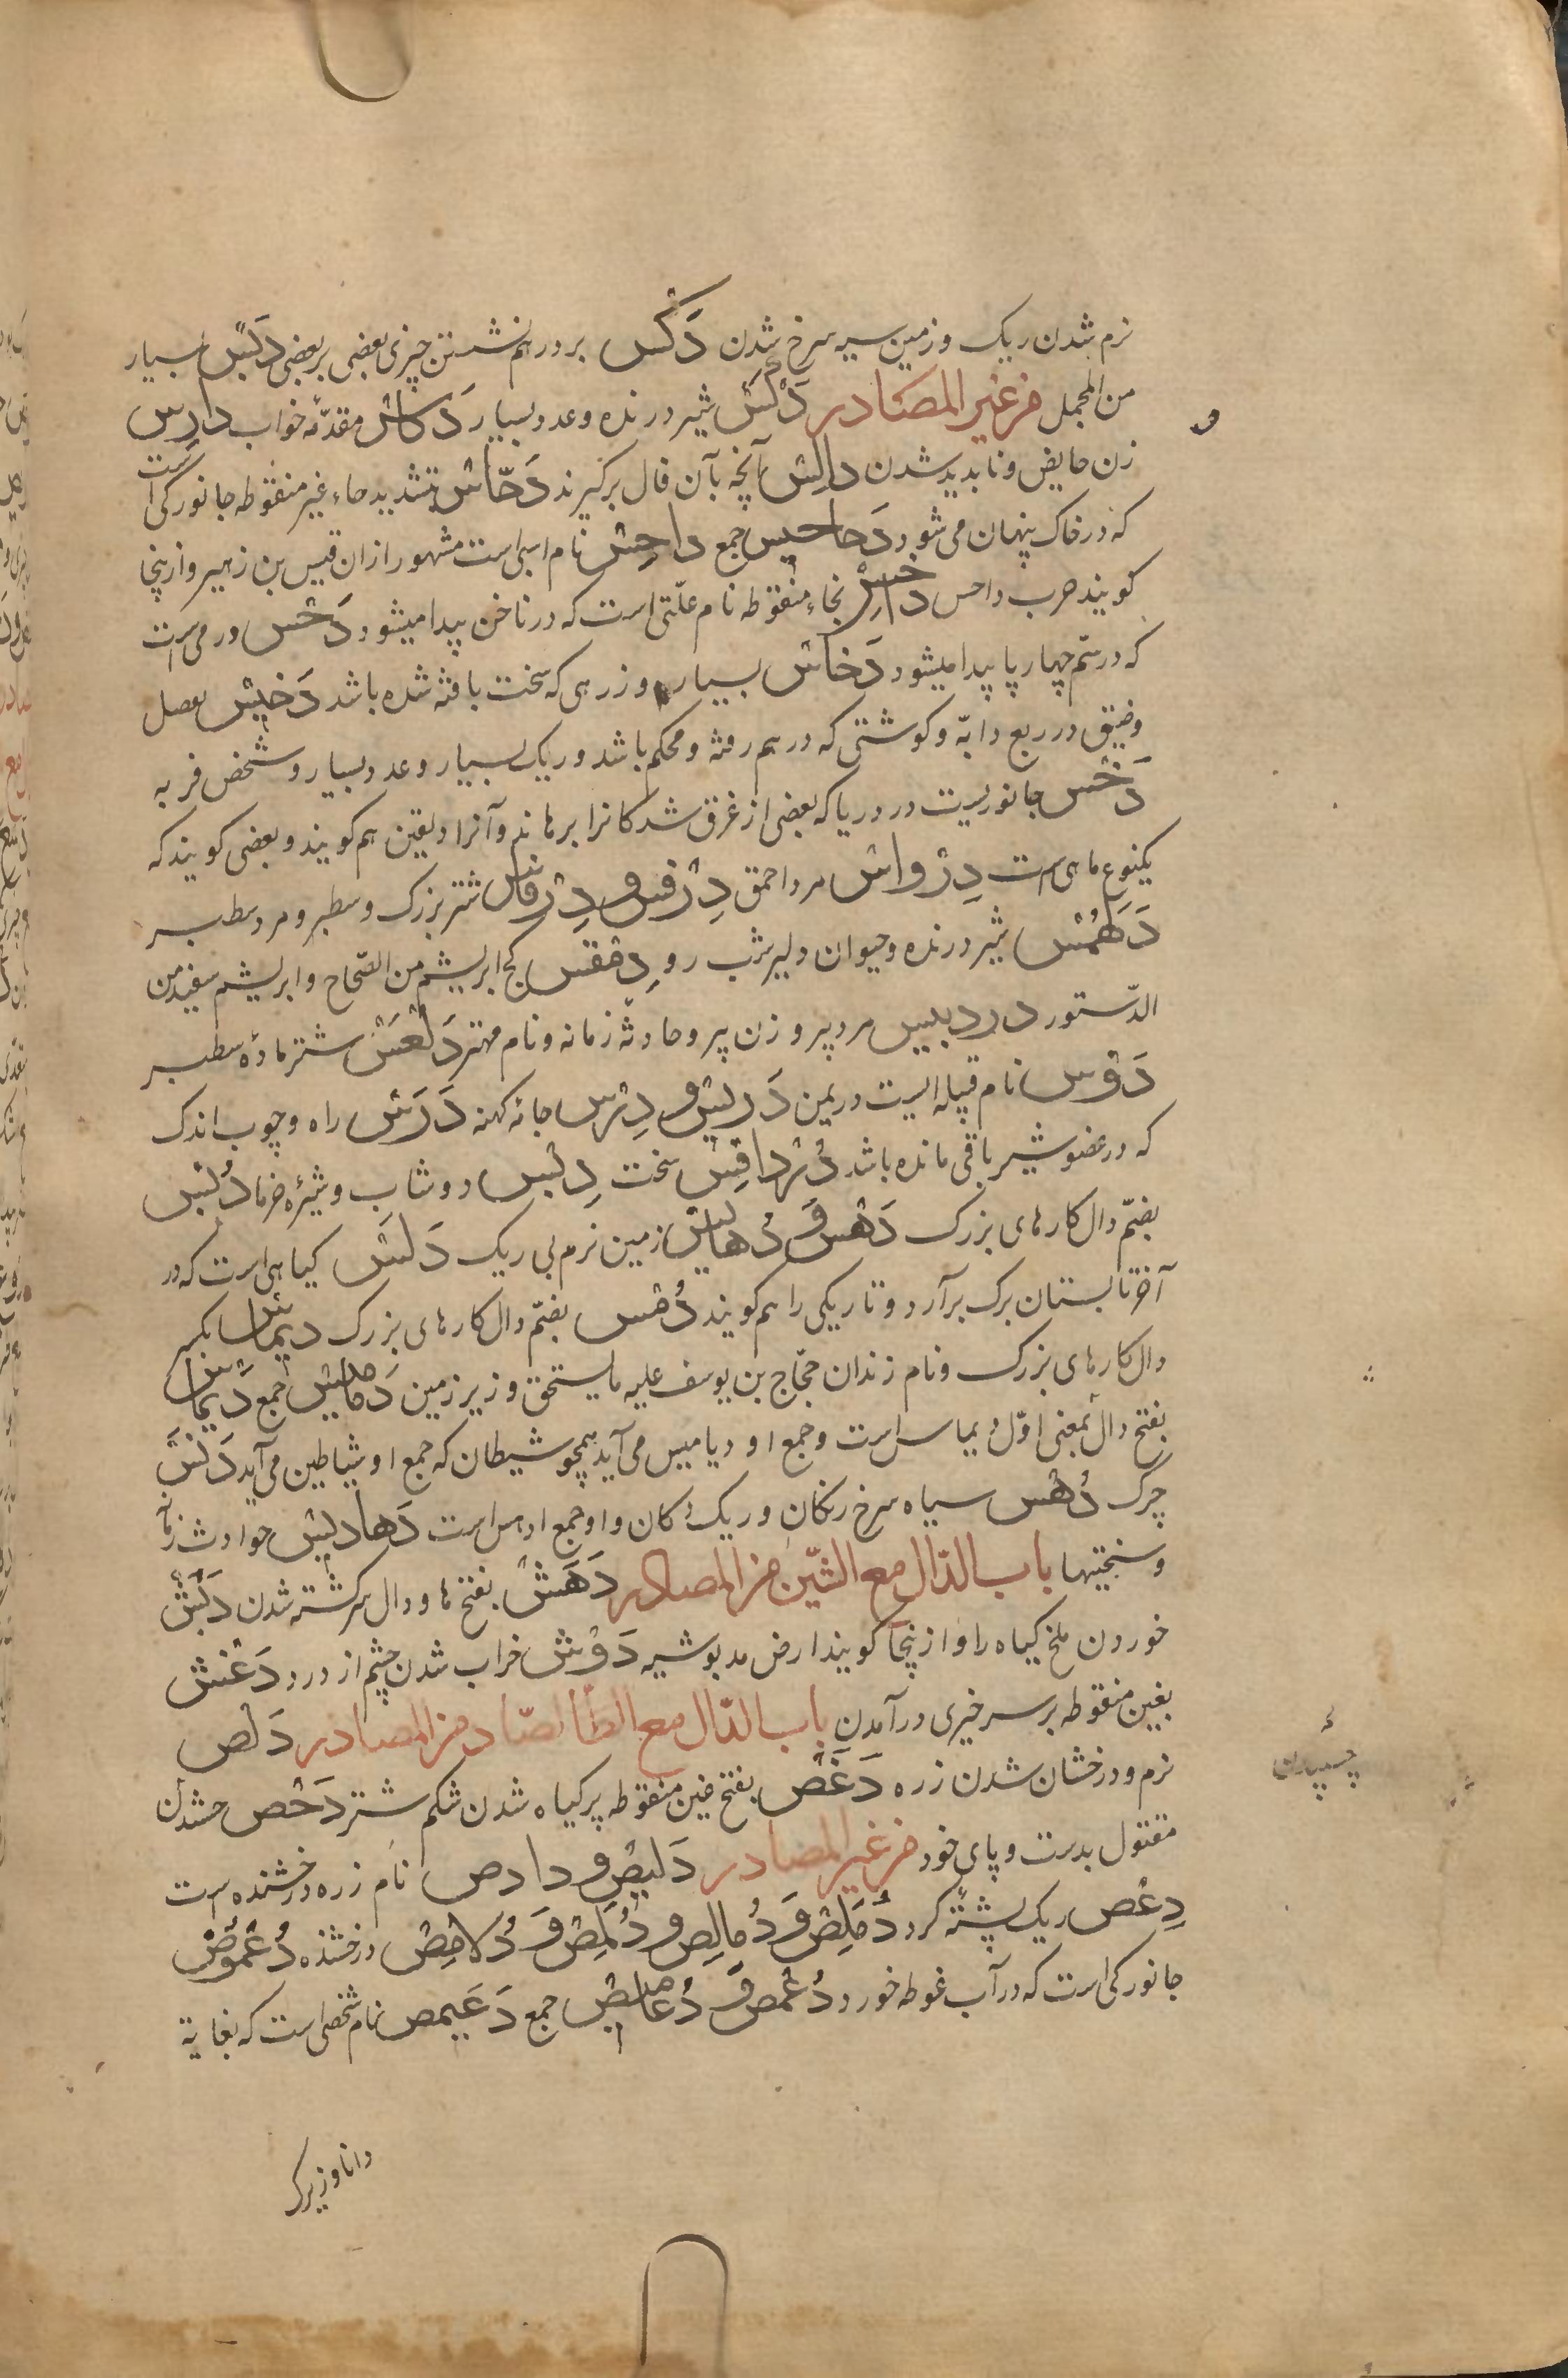 نرم شدن ریک و زمین سیه سرخ شدن دَکْس بر درهم نشستن چیزی بعضی بر بعضی دَبْس بسیار
من المجمل من غیر المصادر دَکْس شیر درنده و عدد بسیار دَکاس مقدّمهٔ خواب دارِس
زن حایض و نابدید شدن دالِس آنچه بآن فال برکیرند دَحّاس بتشدید حاء غیر منقوطه جانورکی است
که در خاک پنهان می شود دَحاحیس جمع داحِس نام اسبی است مشهور ازان قیس بن زهیر و ازینجا
کویند حرب داحس داخِس بخاء منقوطه نام علّتی است که در ناخن پیدا میشود دَخس ورمی است
که در سّم چهارپا پیدا میشود دَخاس بسیار و زرهی که سخت بافته شده باشد دَخیس مفصل
وضیق در ربع دابّه و کوشتی که درهم رفته و محکم باشد و ریک بسیار و عدد بسیار و شخص فربه
دَخس جانوریست در دریا که بعضی از غرق شدکانرا برهاند و آنرا دلفین هم کویند و بعضی کویند که
یکنوع ماهی است دِرْواس مرد احمق دِرَفس و دِرْفاس شتر بزرک و سطبر و مرد سطبر
دَهَمْس شیر درنده و حیوان دلیر شب رو دِمَقْس کج ابریشم من الصّحاح و ابریشم سفید من
الدّستور دردبیس مرد پیر و زن پیر و حادثهٔ زمانه و نام مهتر دَلْعَس شتر مادهٔ سطبر
دَوْس نام قبیله ایست در یمن دَریس و دِرْس جامهٔ کهنه دَرَس راه و چوب اندک
که در عضو شیر باقی مانده باشد دُرداقِس سخت دِبْس دوشاب و شیرهٔ خرما دُبْس
بضّم دال کارهای بزرک دَهْس وَ دَهاس زمین نرم بی ریک دَلَس کیاهی است که در
آخر تابستان برک برآرد و تاریکی را هم کویند دُمْس بضّم دال کارهای بزرک دیماس بکسر
دال کارهای بزرک و نام زندان حجّاج بن یوسف علیه ما یستحق و زیر زمین دَمامیس جمع دَیماس
بفتح دال بمعنی اوّل دیماس است و جمع او دیامیس می آید همچو شیطان که جمع او شیاطین می آید دَنَس
چرک دُهْس سیاه سرخ رنکان و ریک رُکان و او جمع ادهس است دَهادیس حوادث زمانه
و سختیها باب الدّال مع الشّین من المصادر دَهَش بفتح ها و دال سرکشته شدن دَبْش
خوردن ملخ کیاه را و ازینجا کویند ارض مدبوشه دَوَش خراب شدن چشم از درد دَغْش
بغین منقوطه بر سر خیری درآمدن باب الدّال مع الصّاد من المصادر دَلَص
نرم و درخشان شدن زره دَغَص بفتح غین منقوطه پر کیاه شدن شکم شتر دَحْص جنبیدن
مقتول بدست و پای خود من غیر المصادر دَلیص و دادص نام زره درخشنده است
دِعْص ریک پشتهٔ کرد دُمَلِص وَ دُمالِص و دُلَمِص وَ دُلامِص درخشنده دُعْمُوص
جانورکی است که در آب غوطه خورد دُعْمص وَ دَعامیص جمع دَعیمص نام شخصی است که بغایة
دانا و زیرک
چسپیدن